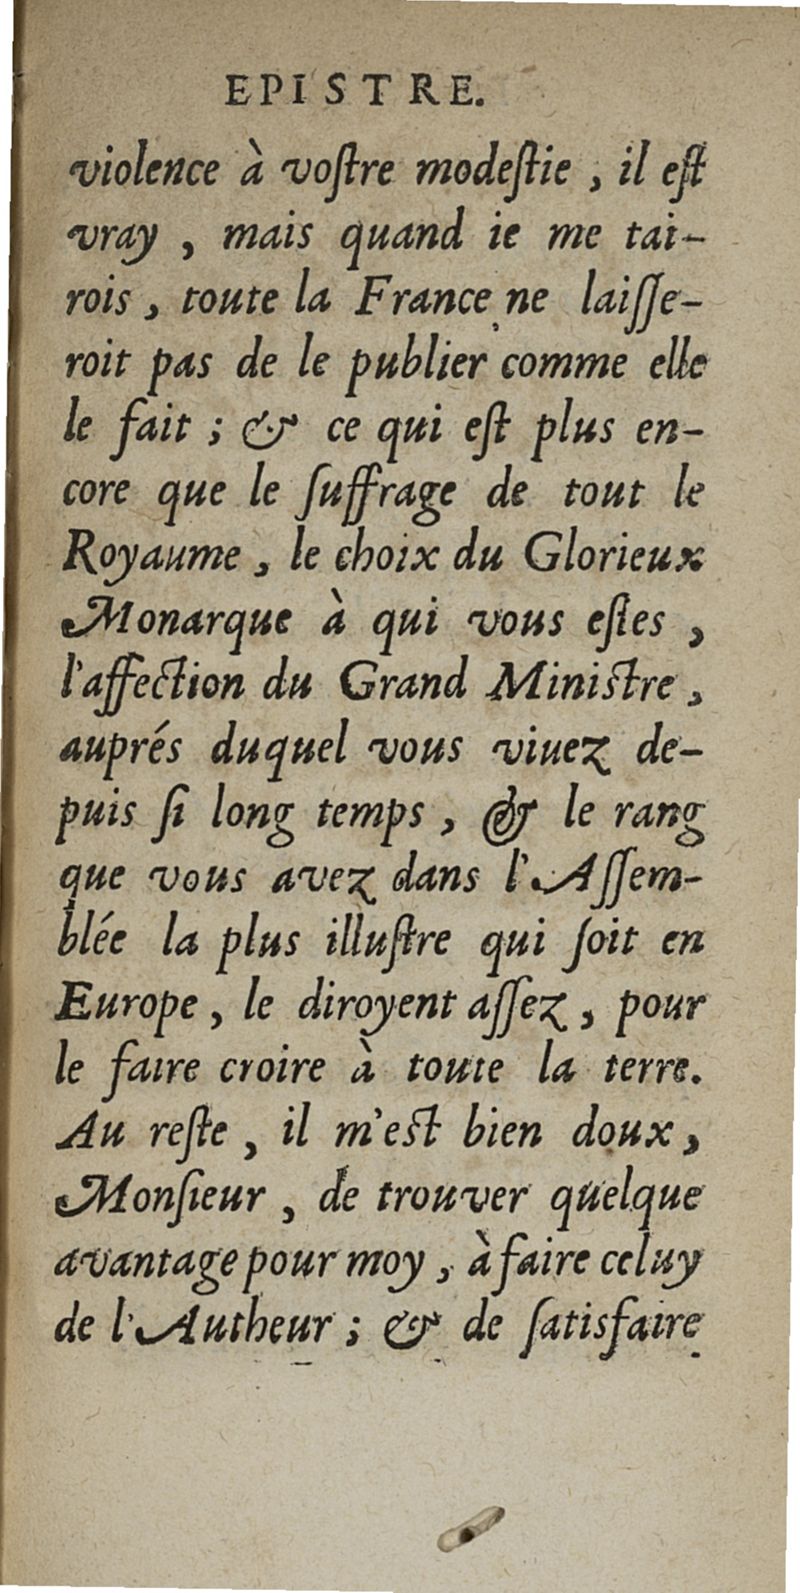 EPISTRE.
violence à voſtre modeſtie , il eſt
vray , mais quand ie me tai-
rois , toute la France ne laiſſe-
roit pas de le publier comme elle
le fait ; & ce qui eſt plus en-
core que le ſuffrage de tout le
Royaume , le choix du Glorieux
Monarque à qui vous eſtes ,
l'affection du Grand Miniſtre ,
auprés duquel vous viuez de-
puis ſi long temps , & le rang
que vous avez dans l'Aſſem-
blée la plus illuſtre qui ſoit en
Europe , le diroyent aſſez , pour
le faire croire à toute la terre.
Au reſte , il m'eſt bien doux ,
Monſieur , de trouver quelque
avantage pour moy , à faire celuy
de l'Autheur ; & de ſatisfaire